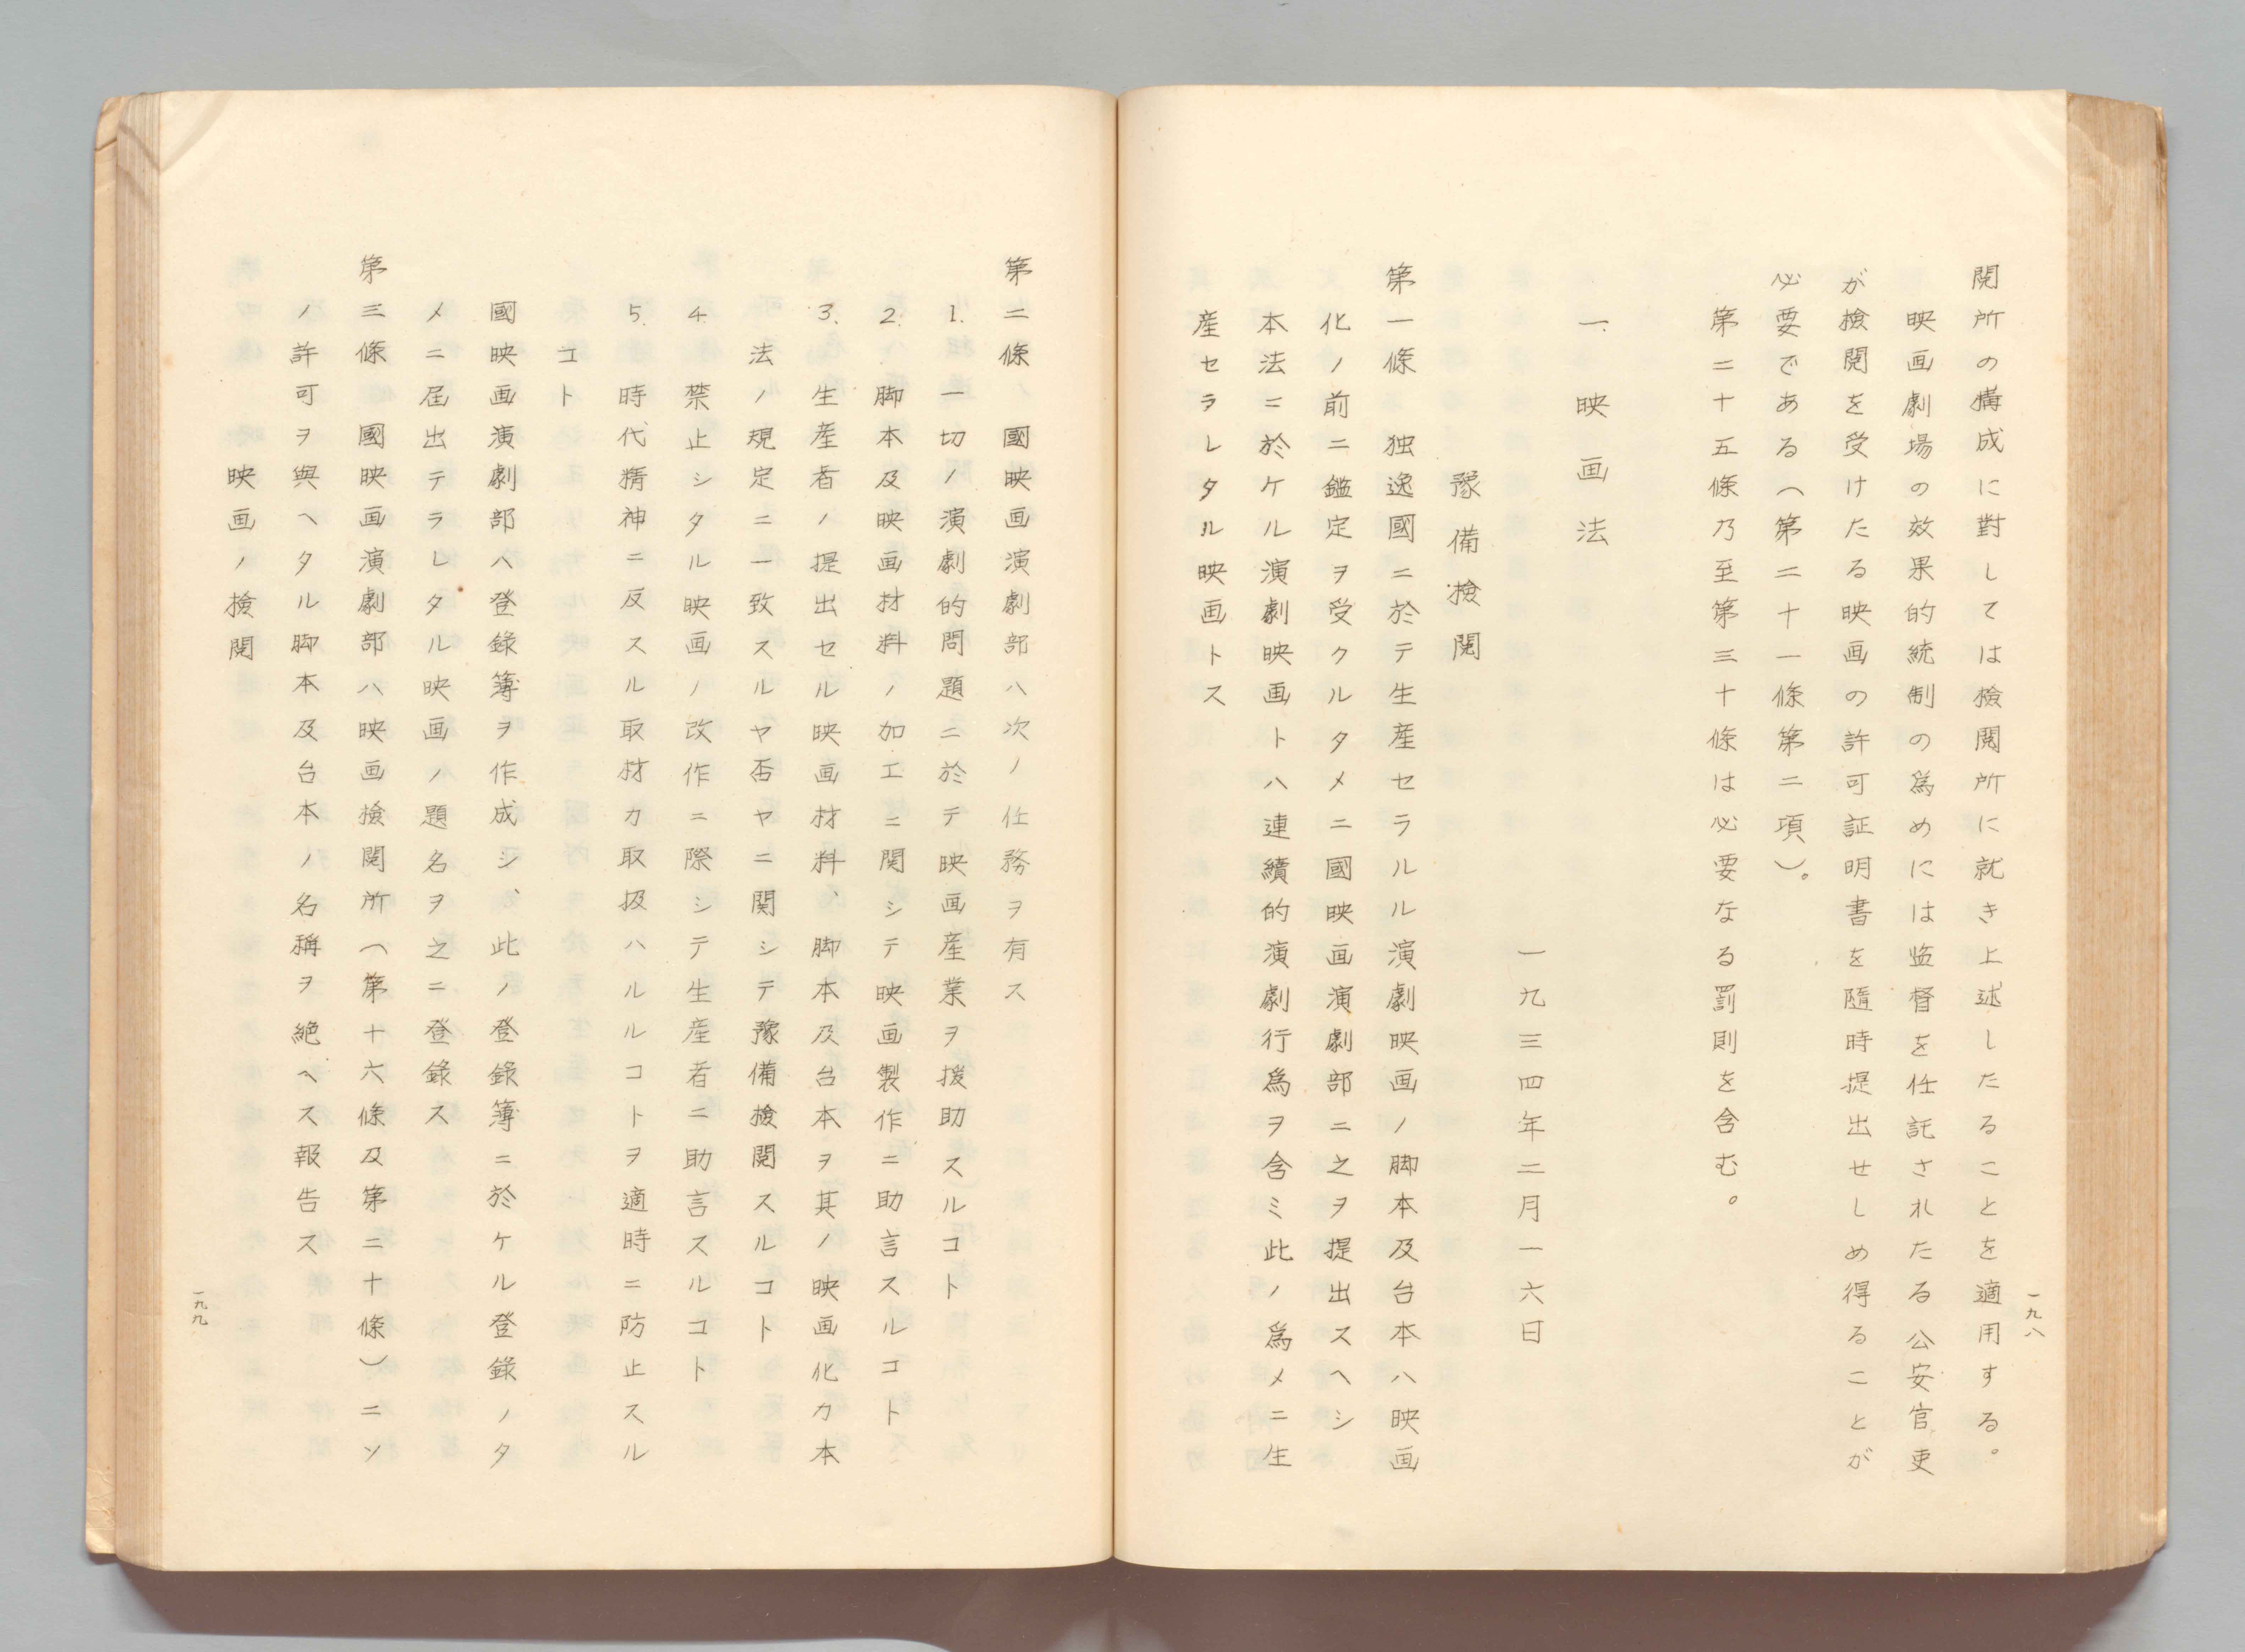 閲所の構成に對しては檢閲所に就き上述したることを適用する。
映画劇場の效果的統制の爲めには监督を任託されたる公安官吏
が檢閲を受けたる映画の許可証明書を隨時提出せしめ得ることが
必要である(第二十一條第二項)。
第二十五條乃至第三十條は必要なる罰則を含む。
一、映画法
一九三四年二月一六日
豫備檢閲
第一條 独逸國ニ於テ生産セラルル演劇映画ノ脚本及台本ハ映画
化ノ前ニ鑑定ヲ受クルタメニ國映画演劇部ニ之ヲ提出スヘシ
本法ニ於ケル演劇映画トハ連續的演劇行爲ヲ含ミ此ノ爲メニ生
産セラレタル映画トス
一九八
第二條 國映画演劇部ハ次ノ任務ヲ有ス
1. 一切ノ演劇的問題ニ於テ映画産業ヲ援助スルコト
2. 脚本及映画材料ノ加工ニ関シテ映画製作ニ助言スルコト
3. 生産者ノ提出セル映画材料、脚本及台本ヲ其ノ映画化カ本
法ノ規定ニ一致スルヤ否ヤニ関シテ豫備檢閲スルコト
4. 禁止シタル映画ノ改作ニ際シテ生産者ニ助言スルコト
5. 時代精神ニ反スル取材カ取扱ハルルコトヲ適時ニ防止スル
コト
國映画演劇部ハ登錄簿ヲ作成シ、此ノ登錄簿ニ於ケル登錄ノタ
メニ屆出テラレタル映画ノ題名ヲ之ニ登錄ス
第三條 國映画演劇部ハ映画檢閲所(第十六條及第二十條)ニソ
ノ許可ヲ與ヘタル脚本及台本ノ名稱ヲ絶ヘス報告ス
映画ノ檢閲
一九九